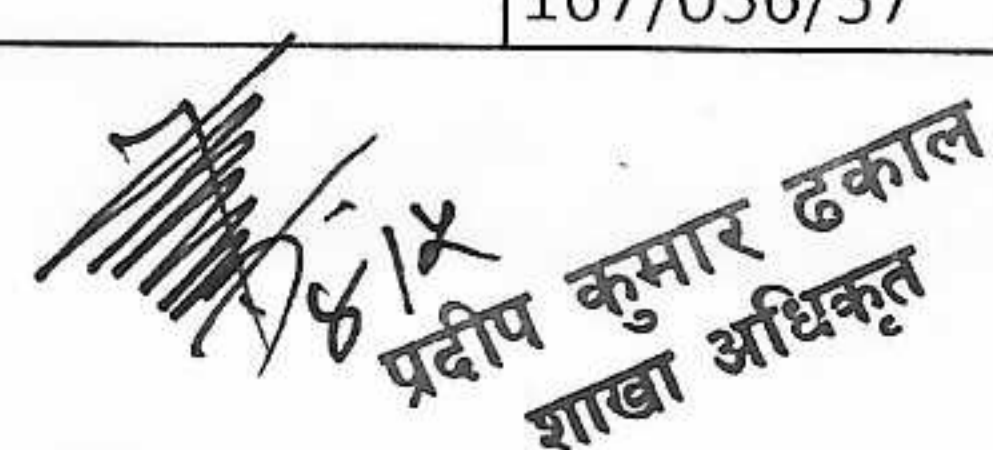 167/056/57
प्रदीप कुमार ढकाल
शाखा अधिकृत